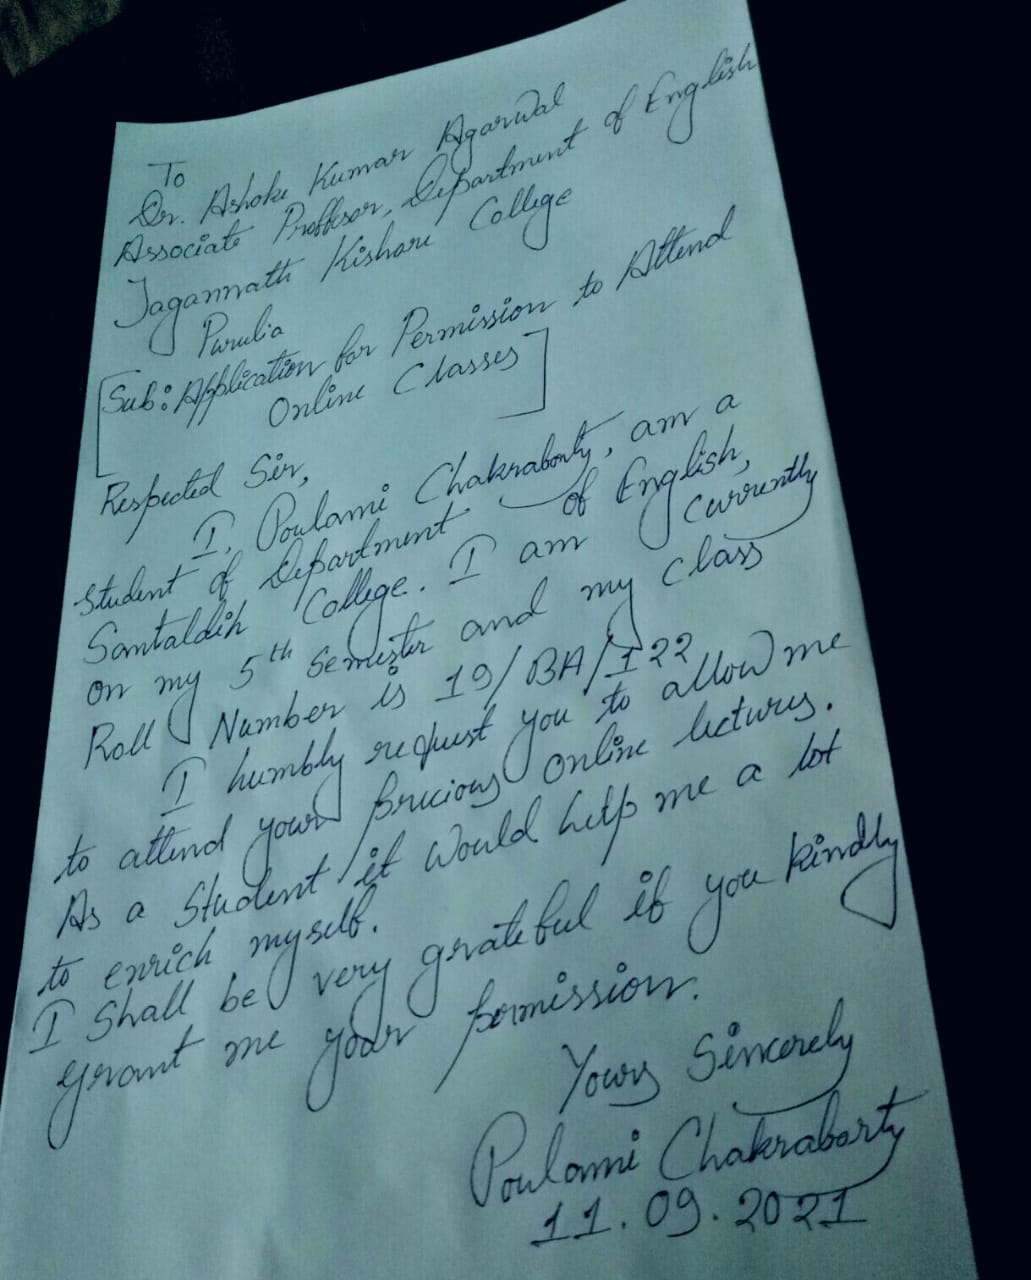 To
Dr. Ashoke Kumar Agarwal
Associate Proffesor, Department of English
Jagannath Kishore College
Purulia
Sub: Application for Permission to Attend
Online Classes
Respected Sir,
I, Poulami Chakraborty, am a
student of Department of English,
Santaldih College. I am currently
on my 5th Semester and my class
Roll Number is 19/BA/122
I humbly request you to allow me
to attend your precious online lectures.
As a Student it would help me a lot
to enrich myself.
I Shall be very grateful if you kindly
grant me your permission.
Yours Sincerely
Poulami Chakraborty
11.09.2021